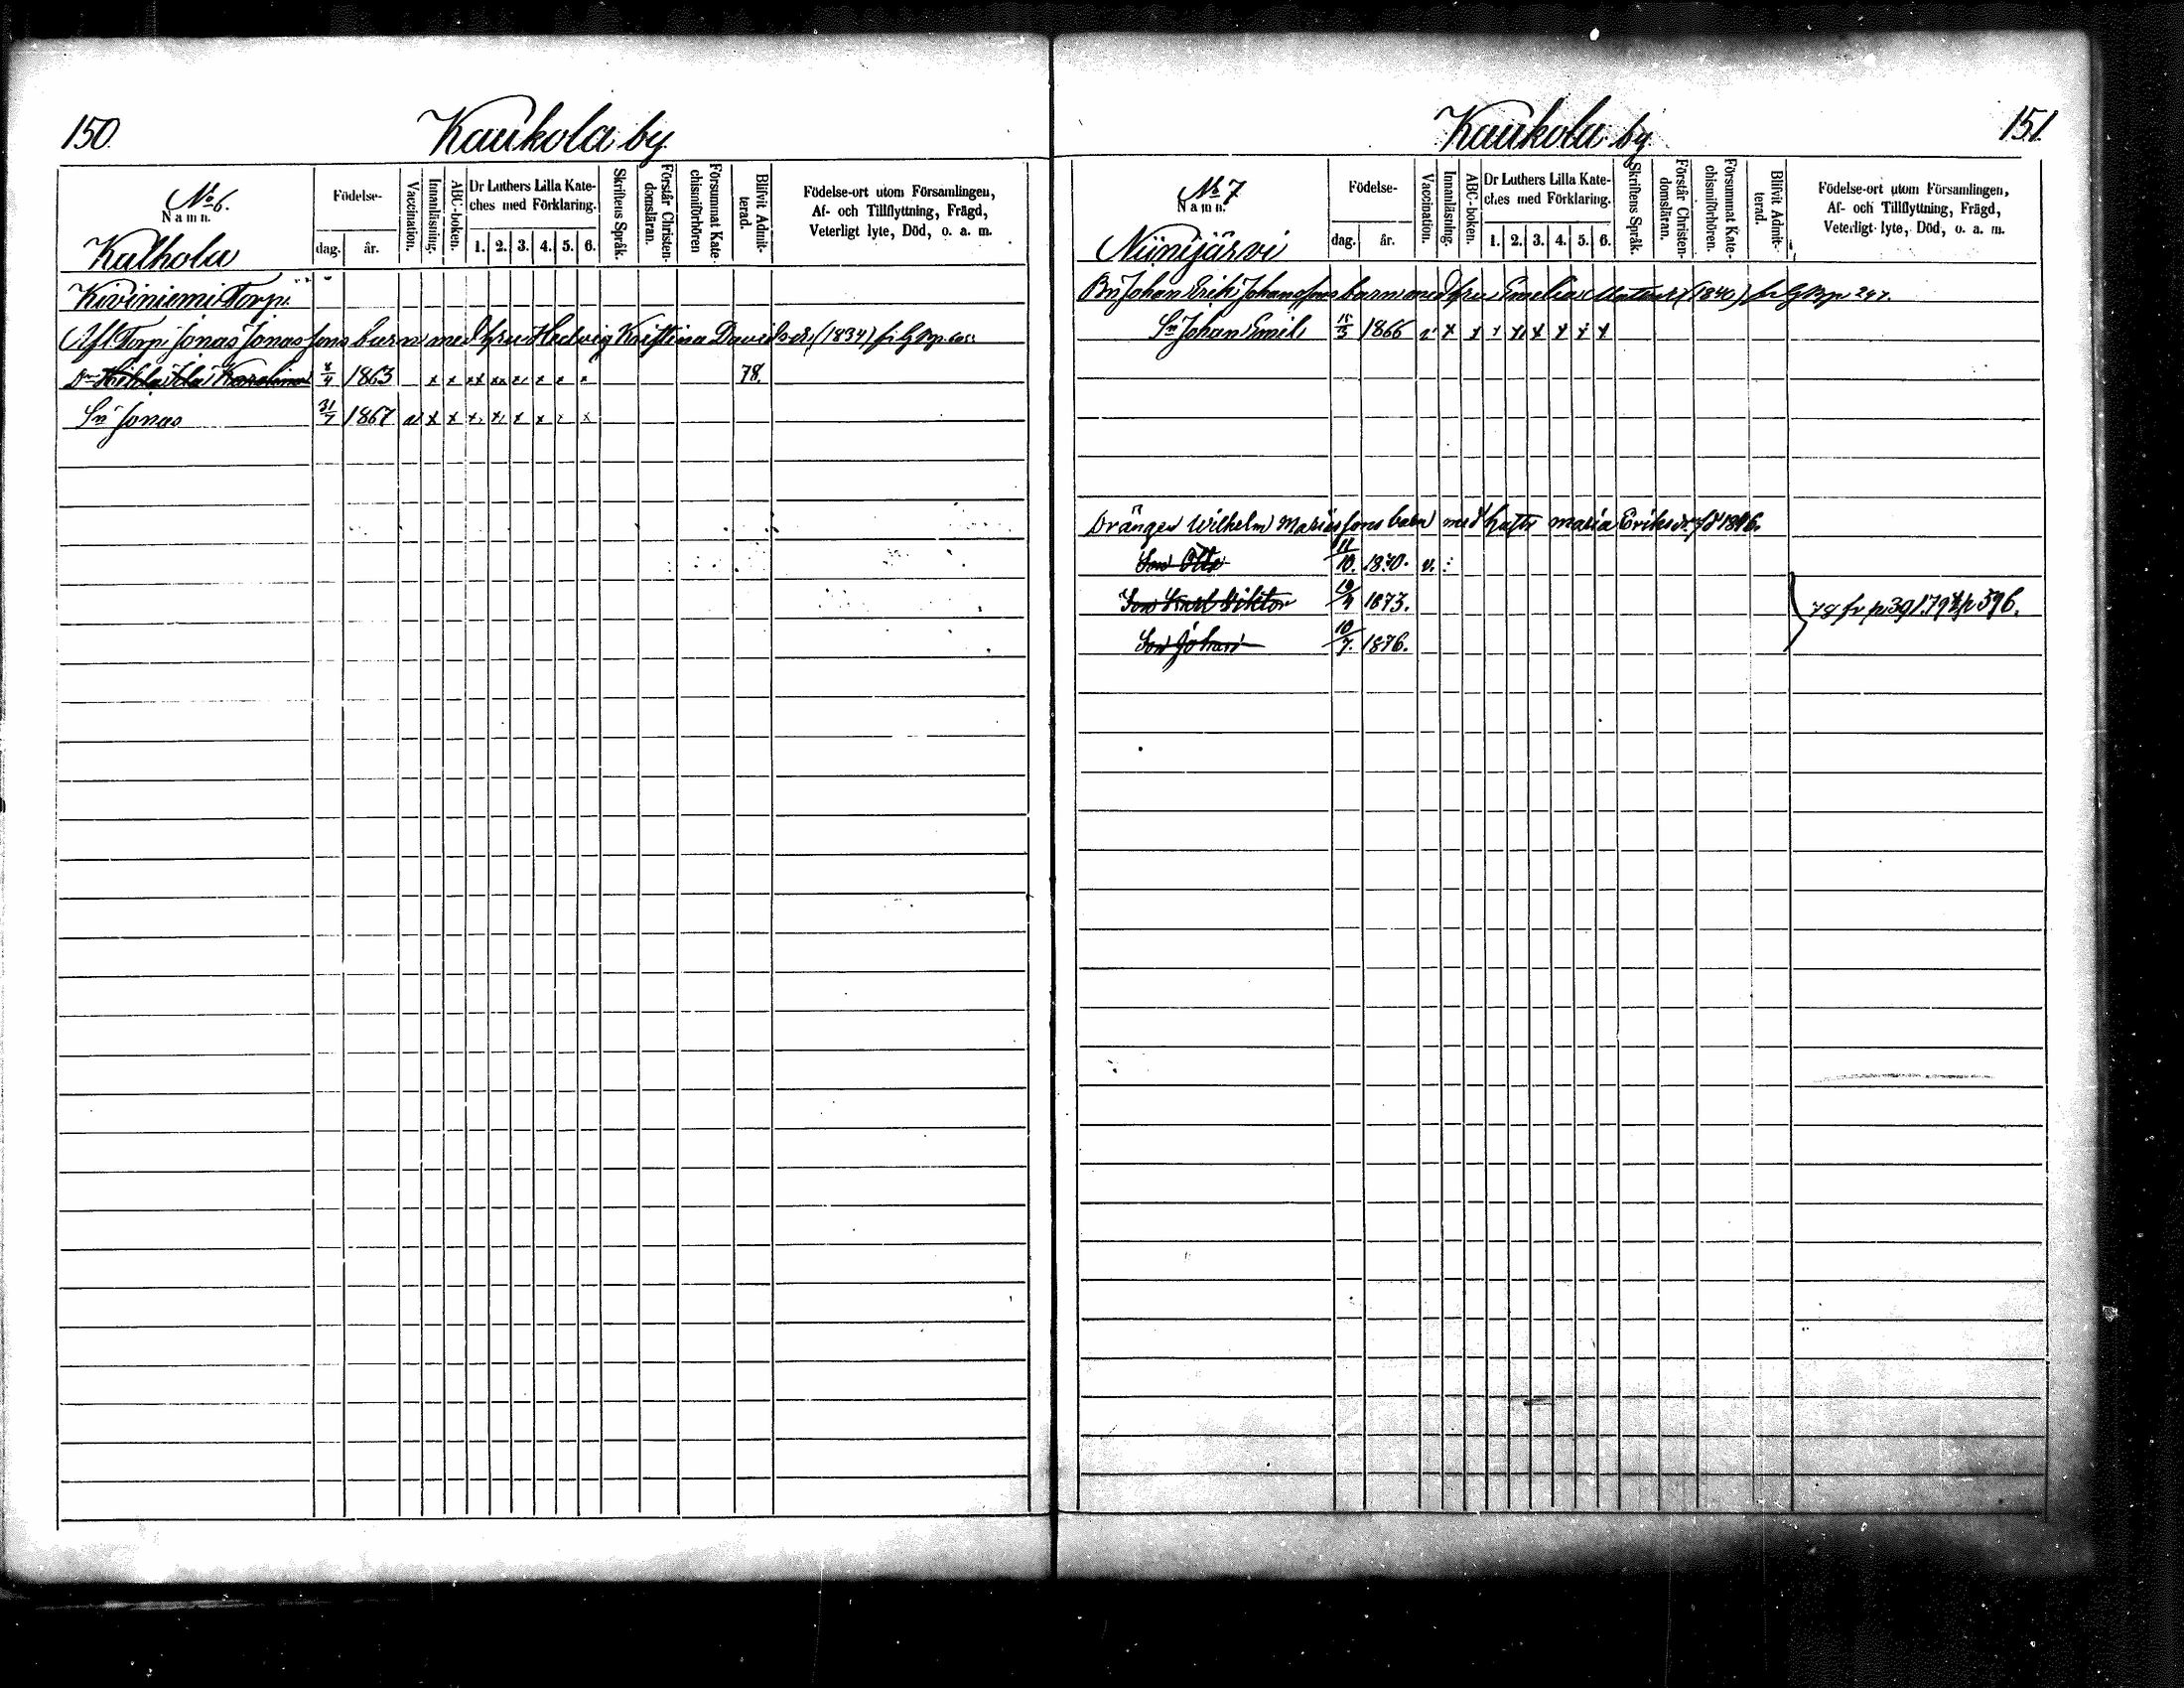 150.
Kaukola by
No 6.
Namn.
Kalhola
Födelse-
dag. år.
Vaccination.
Innanläsning.
ABC-boken.
Dr Luthers Lilla Kate-
ches med Förklaring.
1. 2. 3. 4. 5. 6.
Skriftens Språk.
Förstår Christen-
domsläran.
Försummat Kate-
chismiförhören
Blifvit Admit-
terad.
Födelse-ort utom Församlingen,
Af- och Tillflyttning, Frägd,
Veterligt lyte, Död, o. a. m.
Kiviniemi Torp.
Afl. Torp. Jonas Jonassons barn med hru Hedvig Kristina Davidsdr (1834)
Dr Karolina 8/4 1863 x x xx xx x x x x 78.
Sn Jonas 31/7 1867 v x x x x x x x x
Kaukola by
151.
No 7
Namn.
Niinijärvi
Födelse-
dag. år.
Vaccination.
Innanläsning.
ABC-boken.
Dr Luthers Lilla Kate-
ches med Förklaring.
1. 2. 3. 4. 5. 6.
Skriftens Språk.
Förstår Christen-
domsläran.
Försummat Kate-
chismiförhören.
Blifvit Admit-
terad.
Födelse-ort utom Församlingen,
Af- och Tillflyttning, Frägd,
Veterligt lyte, Död, o. a. m.
Bn Johan Erik Johanssons barn med hru Emelia Matsdr (1840) 247.
Sn Johan Emil 15/3 1866 v x x x x x x x x
Drängen Wilhelm Mariassons barn med hustr Maria Eriksdr fd 1846.
Son Otto 11/10. 1870. v.
Son Karl Viktor 1873.
Son Johan 10/7. 1876.
78 fr p 391. 79 t. p 596.